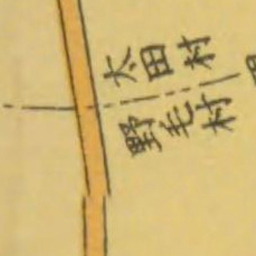 太田村
野毛村